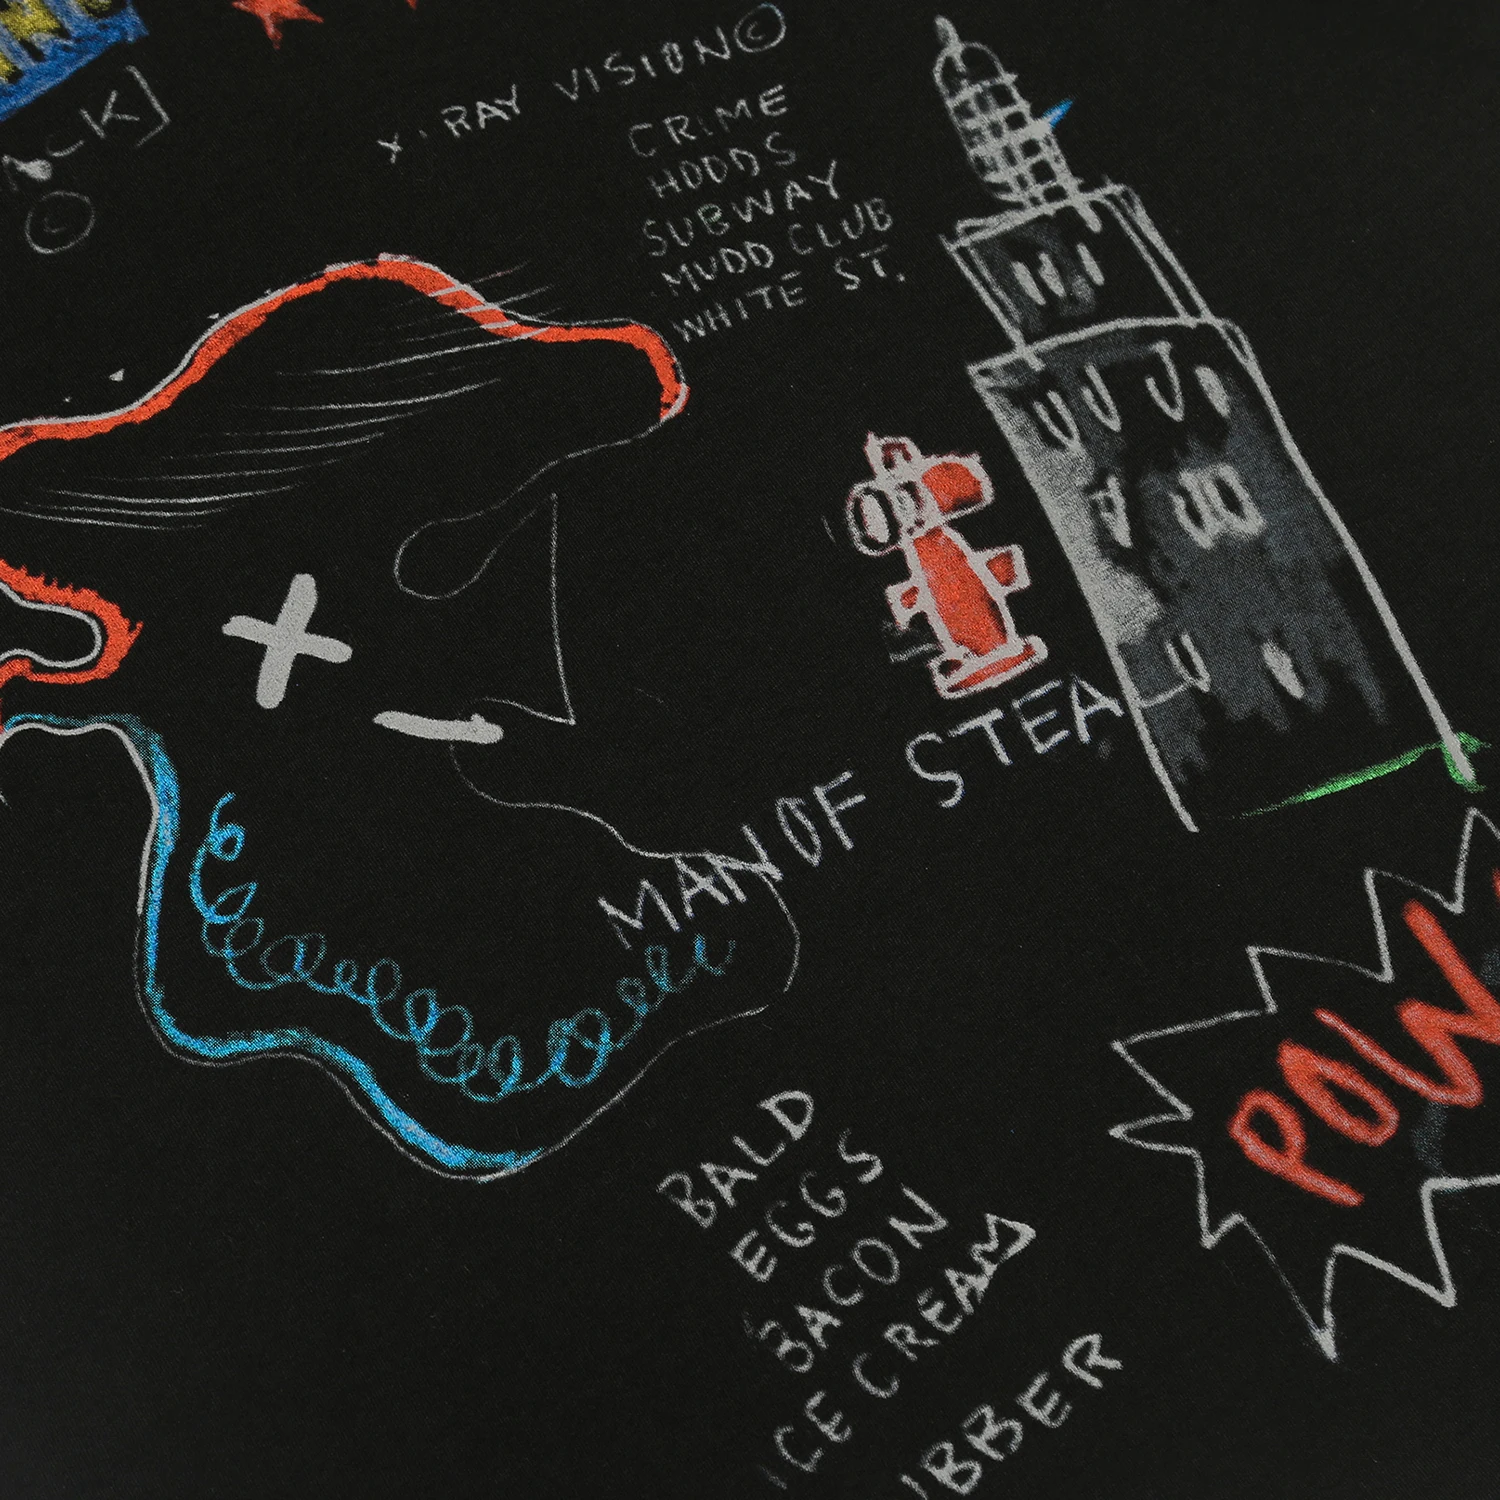 X-RAY VISION©
CRIME
HOODS
SUBWAY
MUDD CLUB
WHITE ST.
©
MAN OF STEA
POW
BALD
EGGS
BACON
ICE CREAM
BBER